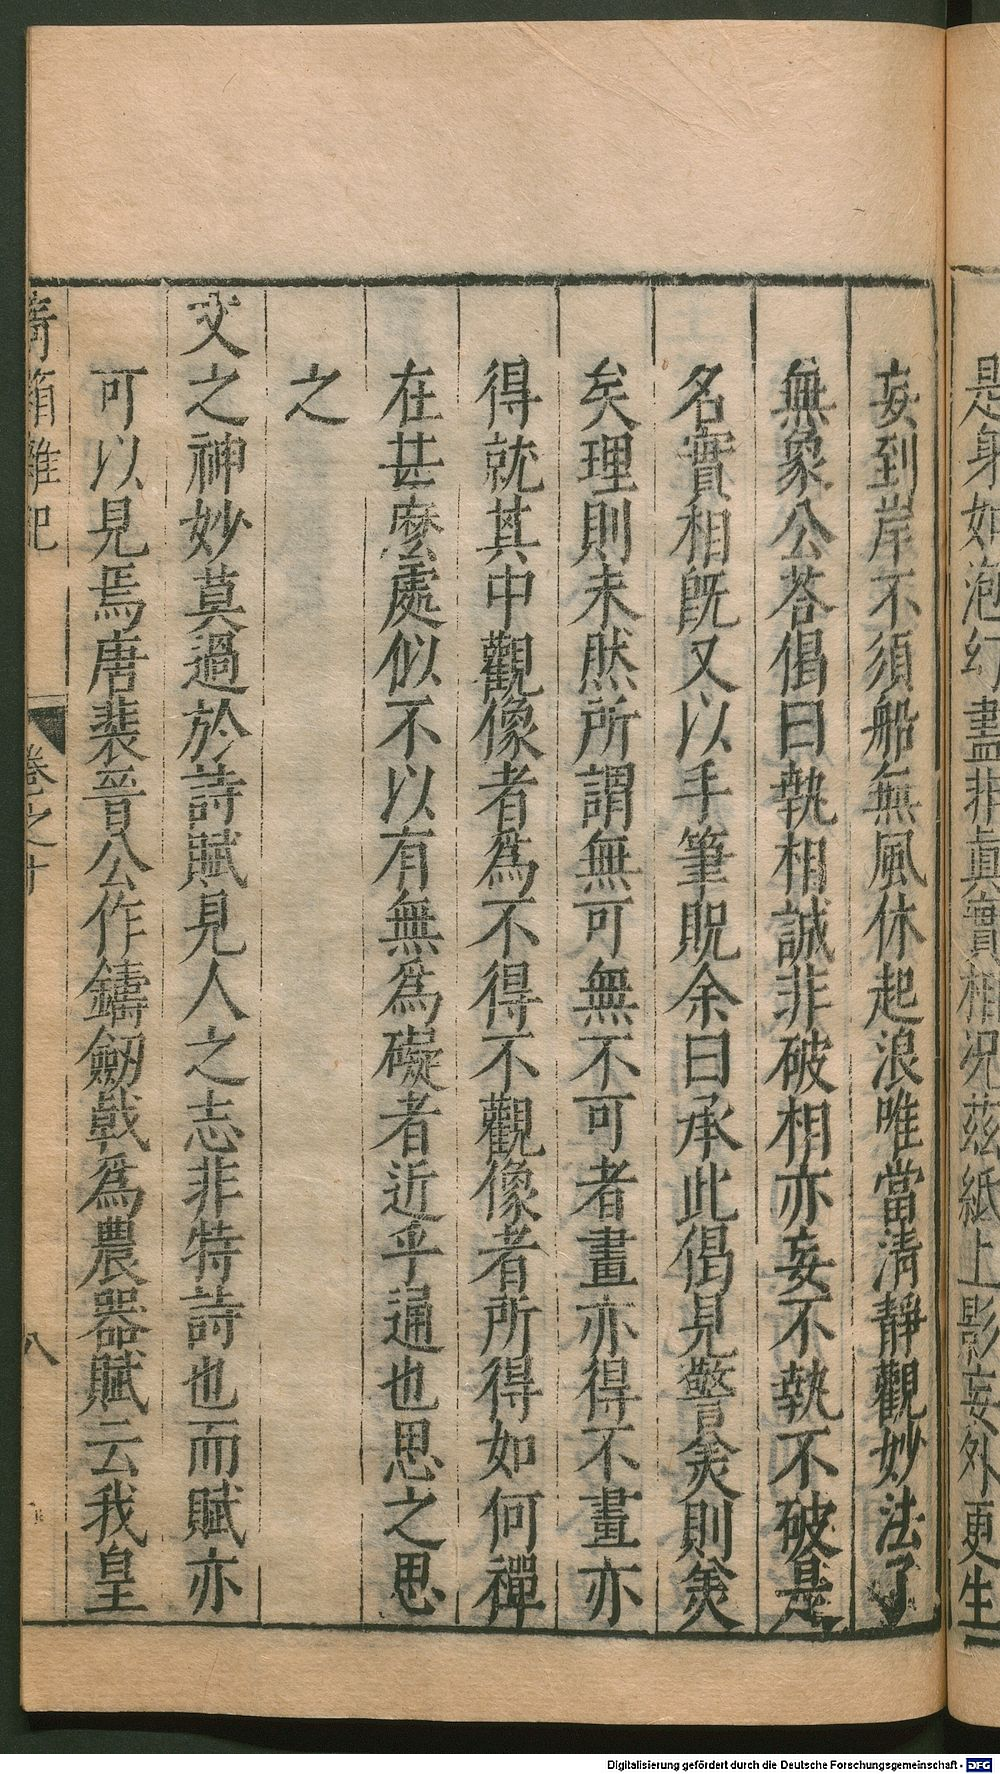 是身如泡幻盡非眞實相况兹紙上影妄外更生
妄到岸不須船無風休起浪唯當淸靜觀妙法了
無象公荅偈曰執相誠非破相亦妄不執不破是
名實相旣又以手筆貺余曰承此偈見警美則美
矣理則未然所謂無可無不可者畫亦得不畫亦
得就其中觀像者爲不得不觀像者所得如何禪
在甚麽處似不以有無爲礙者近乎通也思之思
之
文之神妙莫過於詩賦見人之志非特詩也而賦亦
可以見焉唐裴晉公作鑄劒戟爲農器賦云我皇
青箱雜記 卷之十 八
Digitalisierung gefördert durch die Deutsche Forschungsgemeinschaft - DFG